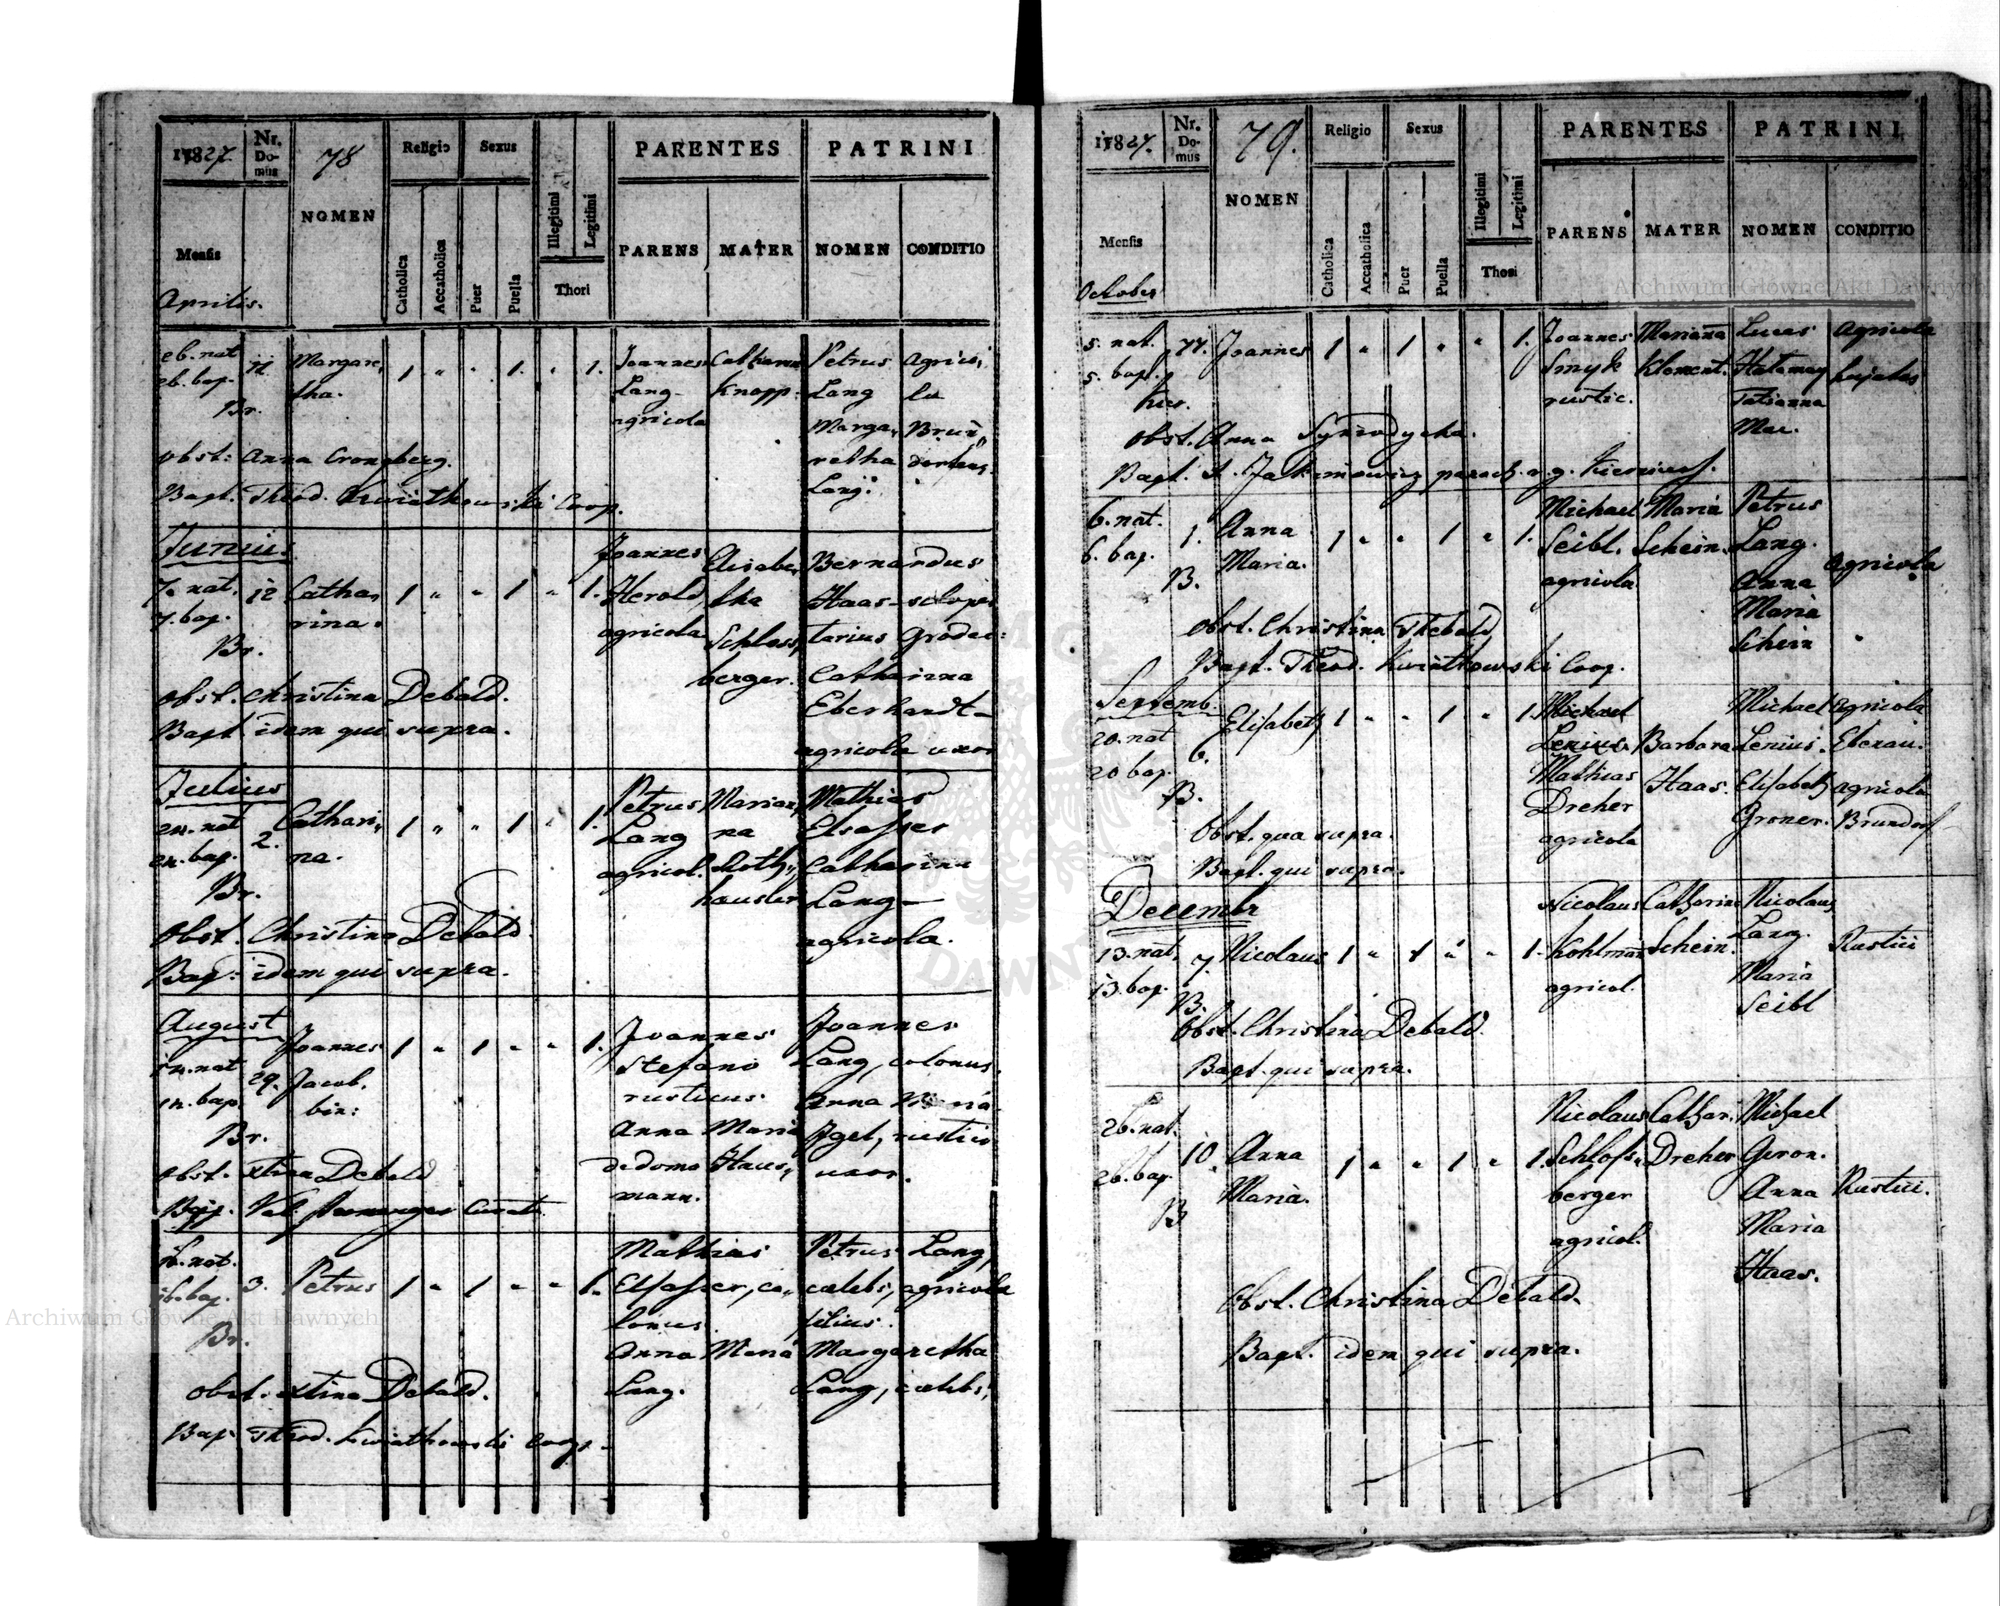 1827.
Nr. Domus
78
NOMEN
Religio
Sexus
Illegitimi
Legitimi
Thori
PARENTES
PATRINI
Mensis
Catholica
Accatholica
Puer
Puella
PARENS
MATER
NOMEN
CONDITIO
Aprilis.
nat
bap.
Br.
Margare,
tha.
1 " " 1. " 1.
Joannes
Lang
agricola
Catharin
Knopp.
Petrus
Lang
Marga,
retha
Lang.
Agrico,
la
Brun,
dorfens.
Obst: Anna Crongberg.
Bapt. Theod. Kwiatkowski Coop.
Junius.
7. nat.
7. bap.
Br.
12
Catha,
rina.
1 " " 1 " 1.
Joannes
Herold,
agricola
Elisabe,
tha
Schloss,
berger.
Bernardus
Haas – sclope
tarius Grodec:
Catharina
Eberhardt –
agricolae uxor
Obst. Christina Debald.
Bapt. idem qui supra.
Julius
24. nat
24. bap.
Br.
2.
Cathari,
na.
1 " " 1 " 1.
Petrus
Lang
agricol.
Marian,
na
Roth,
hausler
Mathias
Elsasser
Catharina
Lang –
agricola.
Obst. Christina Debald.
Bap: idem qui supra.
August
14. nat
14. bap.
Br.
29.
Joannes
Jacob.
bin:
1 " 1 " " 1.
Joannes
Stefano
rusticus.
Anna Maria
de domo Haus,
mann.
Joannes
Lang, colonus.
Anna Maria
Igel, rustici
uxor.
Obst. Xtina Debald
Bap. Val. Curat.
16. nat.
16. bap.
Br.
3.
Petrus
1 " 1 " " 1.
Mathias
Elsasser, co,
lonus.
Anna Maria
Lang.
Petrus Lang,
caelebs, agricola
filius.
Margaretha
Lang, caelebs,
Obst. Xtina Debald.
Bap. Theod. Kwiatkowski Coop.
1827.
Nr. Domus
79.
NOMEN
Religio
Sexus
Illegitimi
Legitimi
Thori
PARENTES
PATRINI
Mensis
Catholica
Accatholica
Puer
Puella
PARENS
MATER
NOMEN
CONDITIO
October
5. nat.
5. bapt.
Kier.
77.
Joannes
1 " 1 " " 1.
Joannes
Smyk
rustic.
Marianna
Klement.
Lucas
Hatamay
Tatianna
Mac.
Agricola
hujates
Obst. Anna Syniodycha.
Bapt. A. Jakimowicz paroch. r. g. Kiernicens.
6. nat.
6. bap.
B.
1.
Anna
Maria.
1 " " 1 " 1.
Michael
Seibl.
agricola
Maria
Schein.
Petrus
Lang.
Anna
Maria
Schein
Agricola
Obst. Christina Thebald
Bapt. Theod. Kwiatkowski Coop.
Septemb.
20. nat
20 bap.
B.
6.
Elisabeth
1 " " 1 " 1.
Michael
Lenius.
Mathias
Dreher
agricola
Barbara
Haas.
Michael
Lenius.
Elisabeth
Groner.
Agricola
Ebenau.
agricola
Brundorf
Obst. qua supra.
Bapt. qui supra.
Decembr
13. nat,
13. bap.
B.
7.
Nicolaus
1 " 1 " " 1.
Nicolaus
Kohlman
agricol.
Catharina
Schein.
Nicolaus
Lang.
Maria
Seibl
Rustici
Obst. Christina Debald.
Bapt. qui supra.
26. nat.
26. bap.
B
10.
Anna
Maria.
1 " " 1 " 1.
Nicolaus
Schloss,
berger
agricol.
Cathar.
Dreher
Michael
Geron.
Anna
Maria
Haas.
Rustici.
Obst. Christina Debald.
Bapt. idem qui supra.
Archiwum Główne Akt Dawnych
Archiwum Główne Akt Dawnych